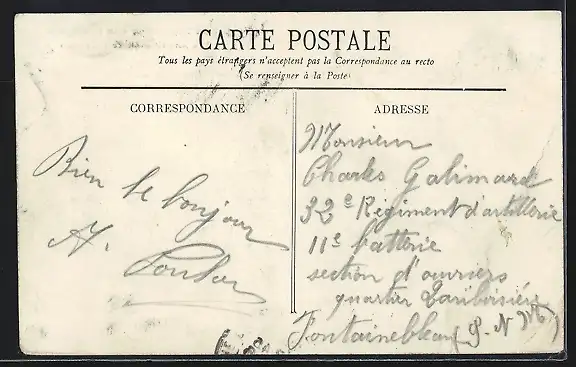 CARTE POSTALE
Tous les pays étrangers n'acceptent pas la Correspondance au recto
(Se renseigner à la Poste)
CORRESPONDANCE
Bien le bonjour
A.
ADRESSE
Monsieur
Charles Galimard
32e Régiment d'artillerie
11e batterie
section d'ouvriers
quartier Lariboisière
Fontainebleau (S. N M)